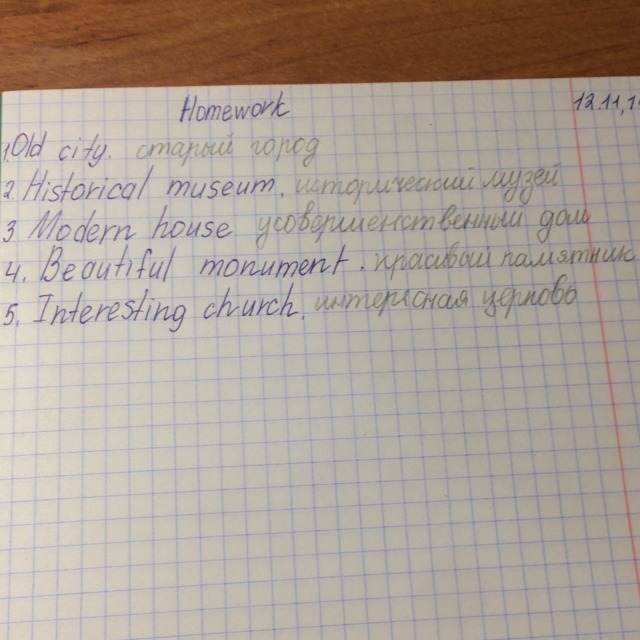 Homework 12.11.1
1. Old city. старый город
2. Historical museum. исторический музей
3. Modern house усовершенственный дом
4. Beautiful monument. красивый памятник
5. Interesting church. интересная церковь